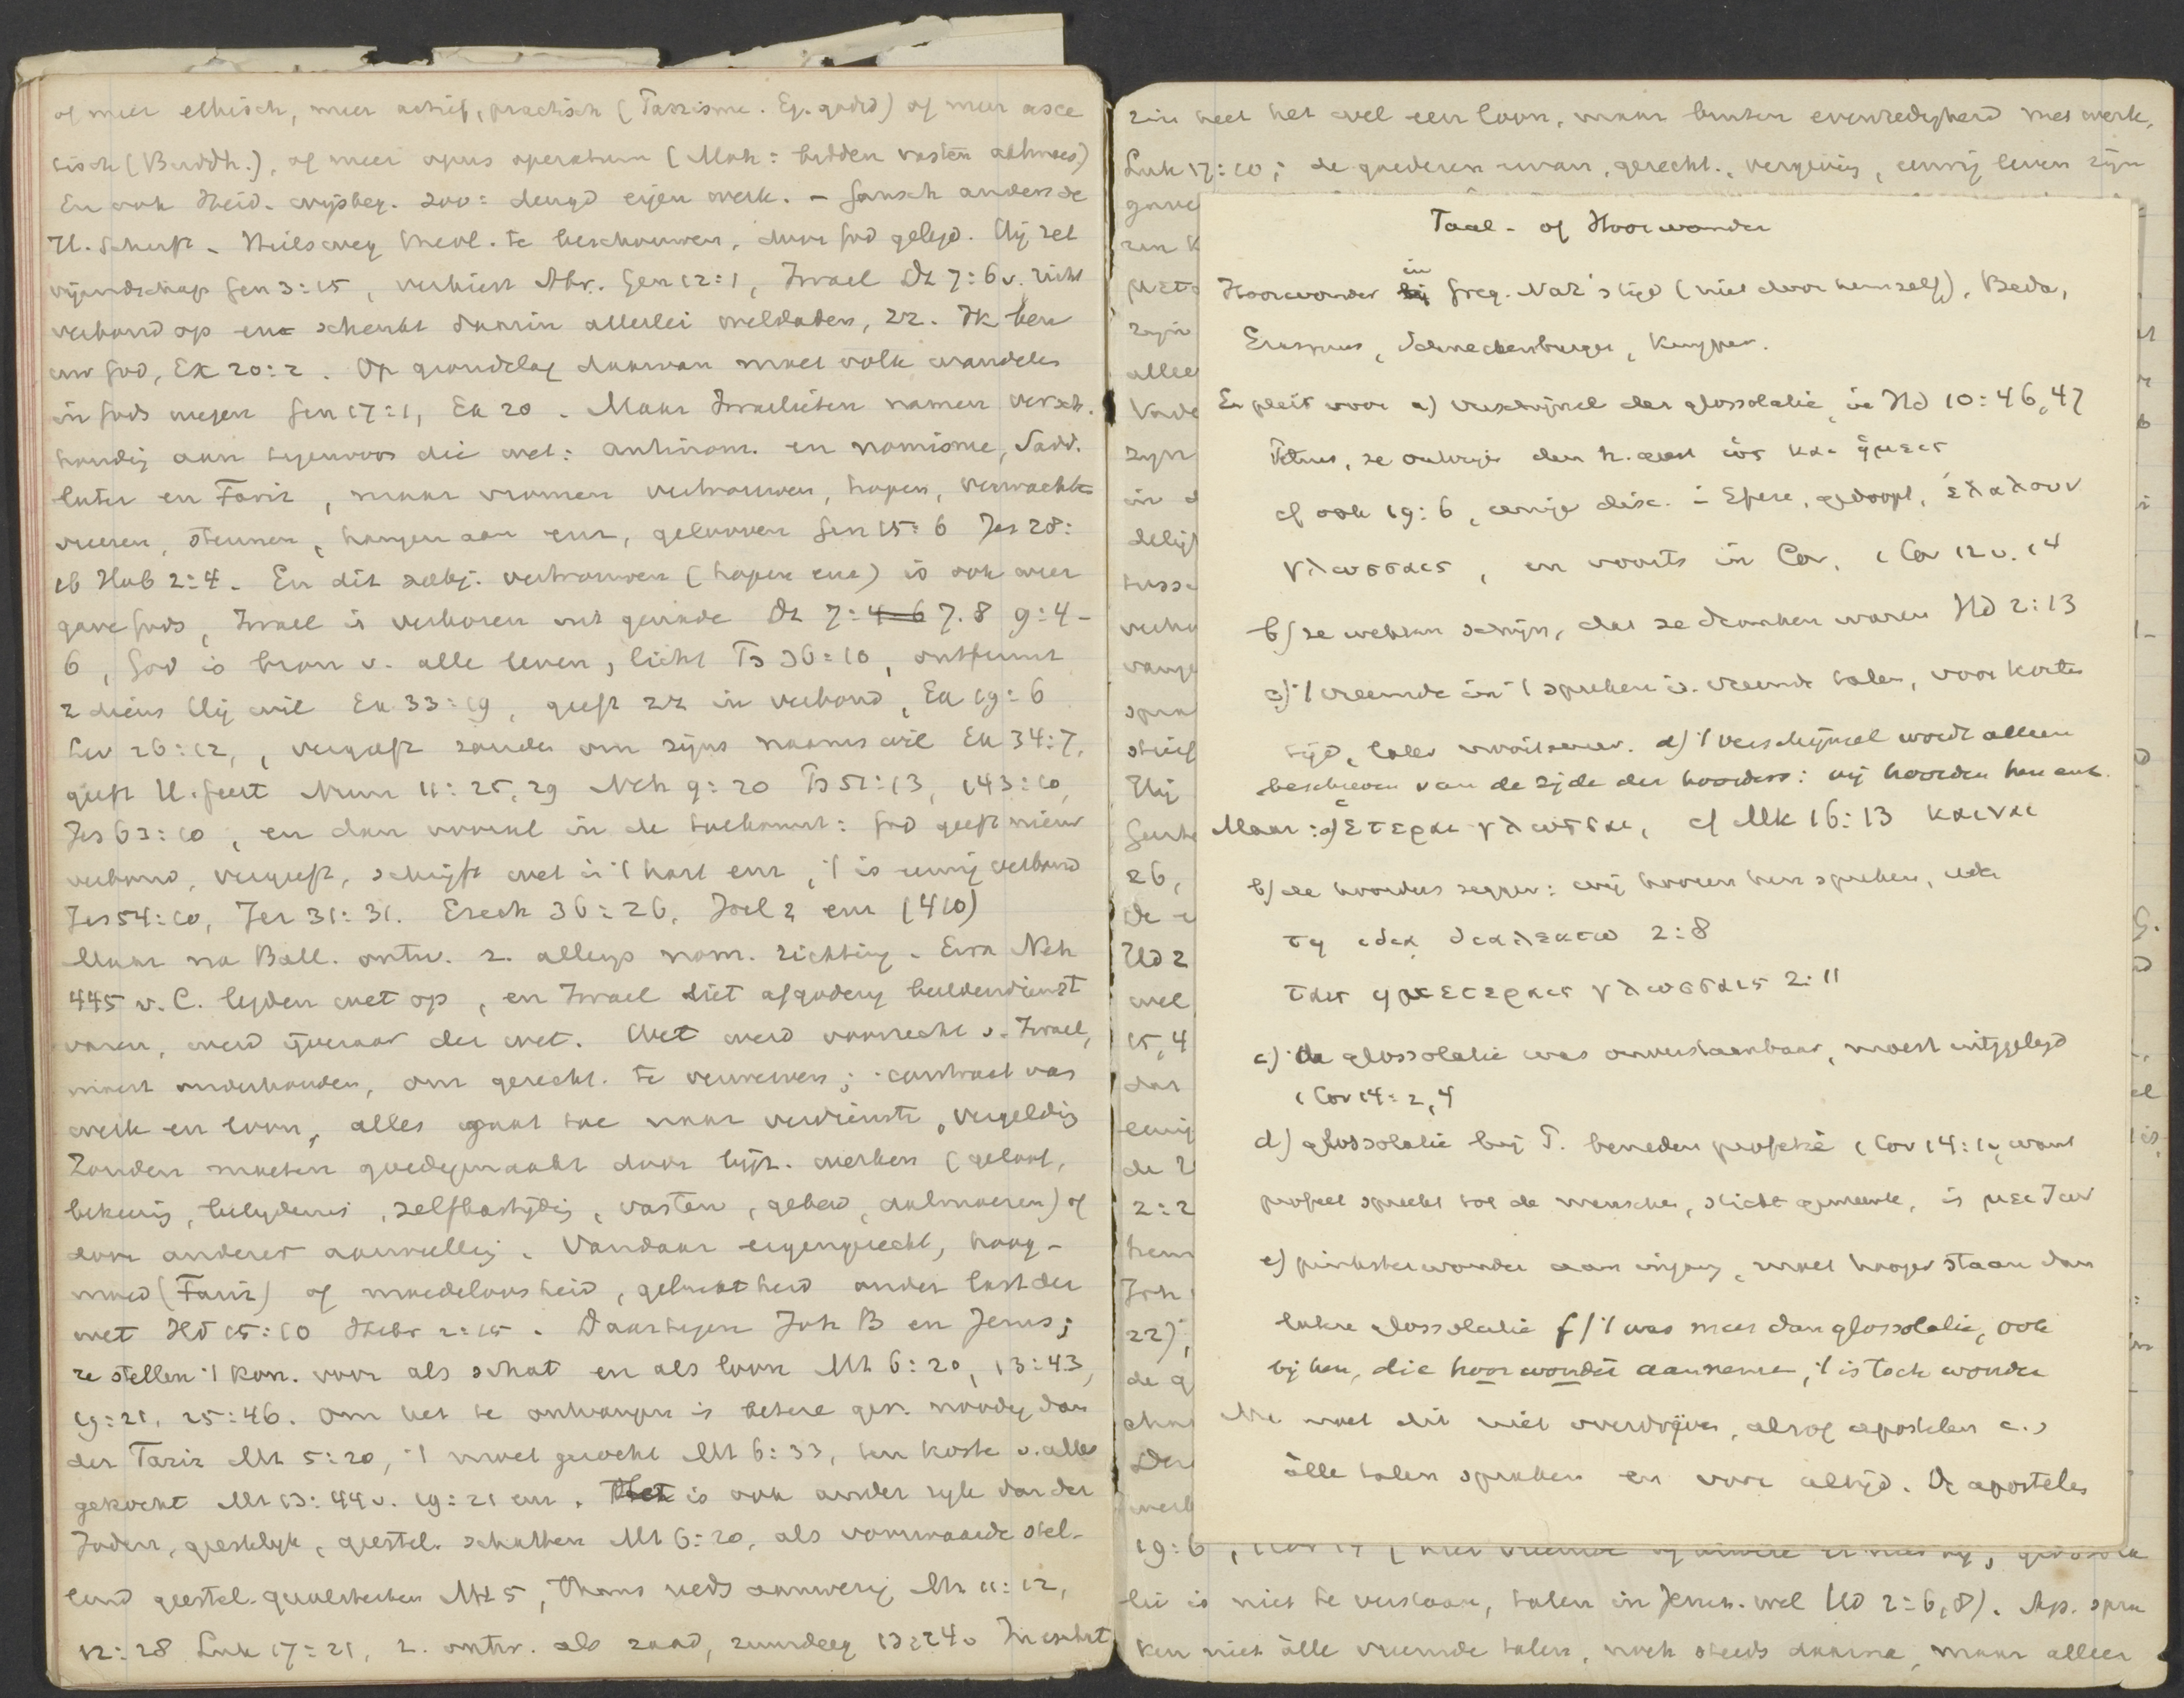 of meer ethisch, meer actief, practisch (Parsisme. Eg. godsd) of meer asce
tisch (Buddh.), of meer opus operatum (Moh: bidden vasten aalmoes)
En ook Heid. wijsbeg. zoo: deugd eigen werk. – Gansch anders de
H. Schrift. Heilsweg theol. te beschouwen, door God gelegd. Hij zet
vijandschap Gen 3:15, verkiest Abr. Gen 12:1, Israel Dt 7:6v. richt
verbond op en schenkt daarin allerlei weldaden, zz. Ik ben
uw God, Ex 20:2. Op grondslag daarvan moet volk wandelen
in Gods wegen Gen 17:1, Ex 20. Maar Israelieten namen versch.
houding aan tegenover die wet: antinom. en nomisme, Sadd.
later en Fariz, maar vromen vertrouwen, hopen, verwachten
vreezen, steunen, hangen aan enz, gelooven Gen 15:6 Jes 28:
16 Hab 2:4. En dit subj. vertrouwen (hopen enz) is ook weer
gave Gods, Israel is verkoren uit genade Dt 7: 4-6 7.8 9:4-
6, God is bron v. alle leven, licht Ps 36:10, ontfermt
z diens Hij wil Ex 33:19, geeft zz in verbond, Ex 19:6
Lev 26:12, vergeeft zonden om zijns naams wil Ex 34:7,
geeft H. Geest Num 11:25,29 Neh 9:20 Ps 51:13, 143:10,
Jes 63:10, en dan vooral in de toekomst: God geeft nieuw
verbond, vergeeft, schrijft wet in 't hart enz, 't is eeuwig verbond
Jes 54:10, Jer 31:31. Ezech 36:26, Joel 2 enz (410)
Maar na Ball. ontw. z. allengs nom. richting. Ezra Neh
445 v. C. legden wet op, en Israel liet afgodery beeldendienst
varen, werd ijveraar der wet. Wet werd voorrecht v. Israel,
moest onderhouden, om gerecht. te verwerven; contract van
werk en loon, alles gaat toe naar verdienste, vergelding
Zonden moeten goedgemaakt door werken (geloof,
bekeering, belydenis, zelfkastijding, vasten, gebed, aalmoezen) of
door anderer aanvulling. Vandaar eigengerecht, hoog-
moed (Fariz) of moedeloosheid, gebuktheid onder last der
wet Hd 15:10 Hebr 2:15. Daartegen Joh B en Jezus;
ze stellen 't kon. voor als schat en als loon Mt 6:20, 13:43,
19:21, 25:46. Om het te ontvangen is betere ger. noodig dan
der Fariz Mt 5:20, 't moet gezocht Mt 6:33, ten koste v. alles
gekocht Mt 13:44v. 19:21 enz. is ook ander ryk dan der
Joden, geestelyk, geestel. schatten Mt 6:20, als voorwaarde stel-
lend geestel. Mt 5, thans reeds aanwezig Mt 11:12,
12:28 Luk 17:21, z. ontw. als zaad, zuurdeeg 13:24v
heet het wel een loon, maar buiten evenredigheid met werk,
Luk 17:10; de goederen ervan, gerecht., vergeving, eeuwig leven zijn
Taal- of Hoorwonder
Hoorwonder in Greg. Naz's tijd (niet door hemzelf), Beda,
Erasmus, Schneckenburger, Kuyper.
Er pleit voor a) verschijnsel der glossolalie, in Hd 10:46,47
Petrus, ze ontvingen den h. geest ὡς και ἡμεις
cf ook 19:6, eenige disc. in Efeze, gedoopt, ἐλαλουν
γλωσσαις, en voorts in Cor. 1 Cor 12 v. 14
b) ze wekten schijn, dat ze dronken waren Hd 2:13
c) 't vreemde in 't spreken v. vreemde talen, voor korten
tijd, later d) 't verschijnsel wordt alleen
beschreven van de zijde der hoorders: wij hoorden hen enz.
Maar: a) ἑτεραι γλωσσαι, cf Mk 16:13 καιναι
b) de hoorders zeggen: wij hooren hen spreken, ieder
τῃ ιδιᾳ διαλεκτω 2:8
ταις ημετεραις γλωσσαις 2:11
c) de glossolalie was onverstaanbaar, moest uitgelegd
1 Cor 14:2,4
d) glossolalie bij P. beneden profetie 1 Cor 14:1v, want
profeet spreekt tot de menschen, sticht gemeente, is μειζων
e) pinksterwonder aan ingang, moet hooger staan dan
latere glossolalie f) 't was meer dan glossolalie, ook
bij hen, die hoorwonder aannemen, 't is toch wonder
Me moet dit niet overdrijven, alsof apostelen
àlle talen spraken en voor altijd. De apostelen
lie is niet te verstaan, talen in Jeruz. wel Hd 2:6,8). Ap. spra
ken niet àlle vreemde talen, noch steeds daarna, maar alleen